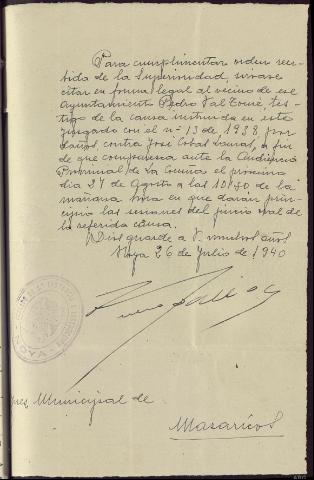 Para cumplimentar orden reci-
bida de la Superioridad, sirvase
citar en forma legal al vecino de ese
Ayuntamiento Pedro Val Tomé, tes-
tigo de la causa instruida en este
juzgado con el nº 13 de 1938, por
daños, contra José Cobas, a fin
de que comparezca ante la Audiencia
Provincial de La Coruña el próximo
dia 27 de Agosto a las 10'30 de la
mañana hora en que darán prin-
cipio las sesiones del juicio oral de
la referida causa.
Dios guarde a V. muchos años
Noya 26 de Julio de 1940
NOYA
Juez Municipal de
Mazaricos